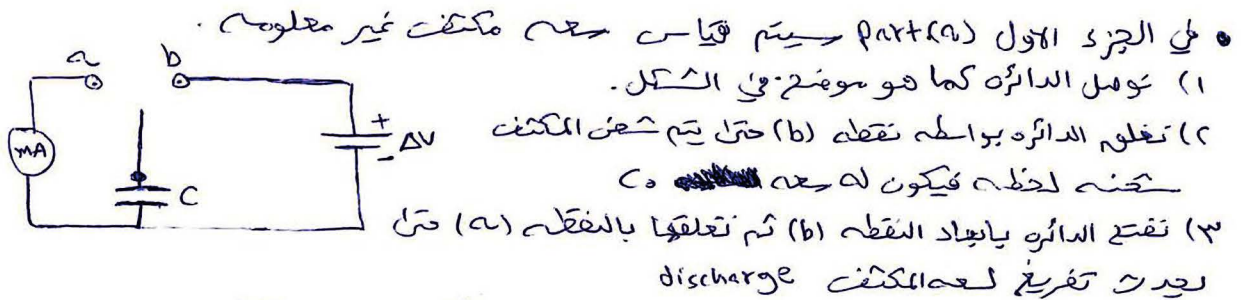 • في الجزء الاول Part(a) سيتم قياس سعه مكثف غير معلومه .
١) نوصل الدائره كما هو موضح في الشكل.
٢) تغلق الدائره بواسطه نقطه (b) حتى يتم شحن المكثف
شحنه لحظه فيكون له سعه C₀
٣) نفتح الدائره بابعاد النقطه (b) ثم نغلقها بالنقطه (a) حتى
يحدث تفريغ لسعه المكثف discharge
a b
mA
C
+
ΔV
-